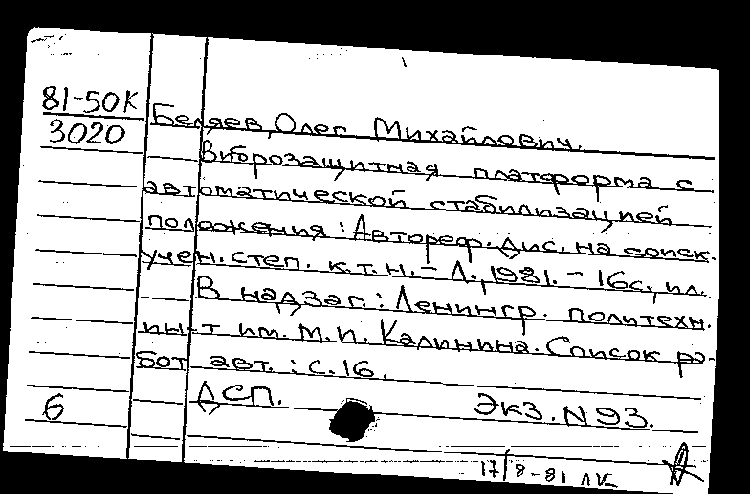 81-50К
3020
Беляев, Олег Михайлович.
Виброзащитная платформа с
автоматической стабилизацией
положения : Автореф. дис. на соиск.
учен. степ. к.т.н. – Л., 1981. – 16с., ил.
В надзаг : Ленингр. политехн.
ин-т им. М.И. Калинина. Список ра-
бот авт. : с. 16.
ДСП.
Экз. N 93.
6
17/8-81 ЛК